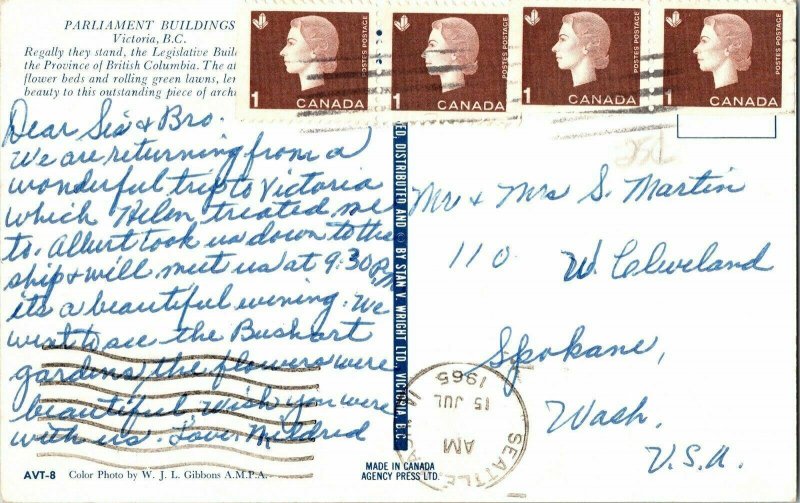 PARLIAMENT BUILDINGS
Victoria, B.C.
Regally they stand, the Legislative Buil
the Province of British Columbia. The at
flower beds and rolling green lawns, len
beauty to this outstanding piece of archi
1 CANADA POSTES POSTAGE
1 CANADA POSTES POSTAGE
1 CANADA POSTES POSTAGE
1 CANADA POSTES POSTAGE
Dear Sis & Bro.
We are returning from a
wonderful trip to Victoria
which Helen treated me
to. Albert took us down to the
ship & will meet us at 9:30 P.M.
its a beautiful evening. We
went to see the Bushart
gardens the flowers were
beautiful, wish you were
with us. Love Mildred
AVT-8 Color Photo by W. J. L. Gibbons A.M.P.A.
ED, DISTRIBUTED AND © BY STAN V. WRIGHT LTD., VICTORIA, B.C.
MADE IN CANADA
AGENCY PRESS LTD.
Mr & Mrs S. Martin
110 W. Cleveland
Spokane,
Wash.
U.S.A.
SEATTLE
AM
15 JUL
1965